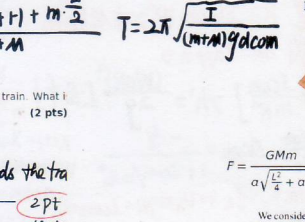 +r) + m·
+M
T=2π√(I/((m+M)gdcom))
train. What i
(2 pts)
ds the tra
2pt
F = GMm / a√(L²/4 + a
We conside